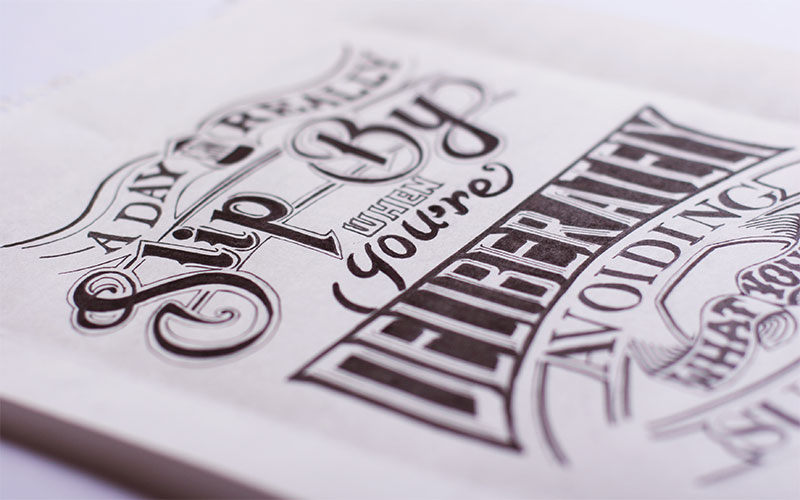 A DAY CAN REALLY
Slip By
WHEN
you're
DELIBERATELY
AVOIDING
WHAT YOU